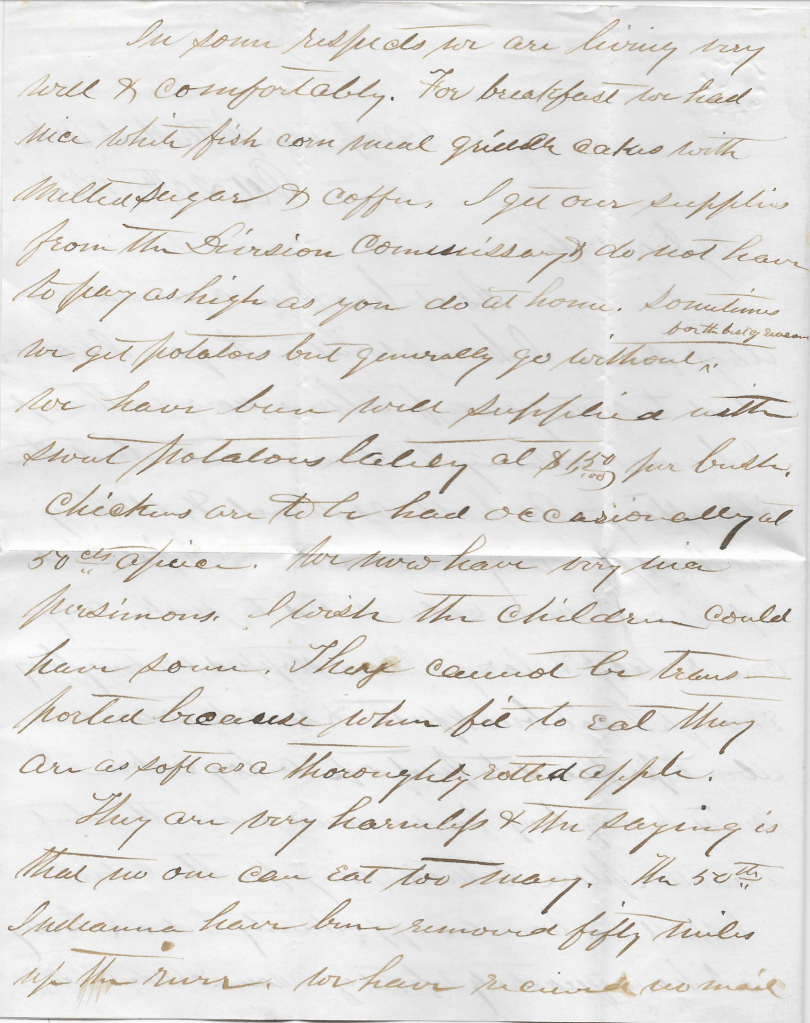 In some respects we are living very
well & comfortably. For breakfast we had
nice white fish corn meal griddle cakes with
melted sugar & coffee. I get our supplies
from the Division Commissary & do not have
to pay as high as you do at home. Sometimes
for the best of reason
we get potatoes but generally go without ^
We have been well supplied with
sweet potatoes lately at $1.50/.00) per bush.
Chickens are to be had occasionally at
50 cts apiece. We now have very nice
persimons. I wish the children could
have some. They cannot be trans-
ported because when fit to eat they
are as soft as a thoroughly rotted apple.
They are very harmless & the saying is
that no one can eat too many. The 50th
Indianna have been removed fifty miles
up the river. We have received no mail